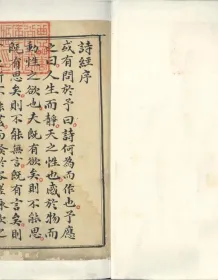 詩經序
或有問於予曰詩何為而作也予應
之曰人生而靜天之性也感於物而
動性之欲也夫既有欲矣則不能思
既有思矣則不能無言既有言矣則